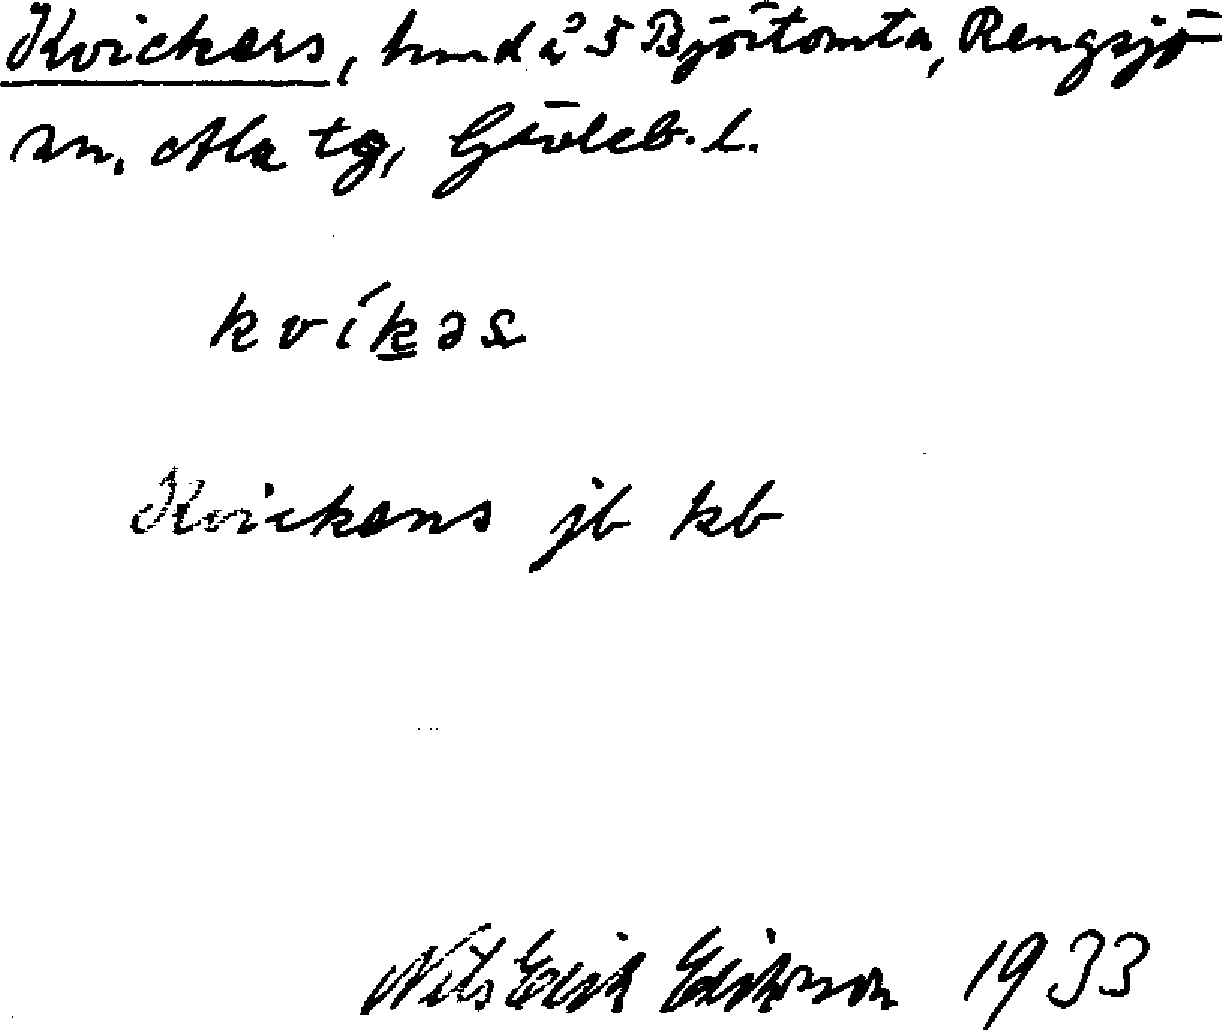 Kvickers, hmd å 5 Björtomta, Rengsjö
sn, Ala tg, Gävleb. l.
kvíkəs
Kvickens jb kb
Nils Erik Eriksson 1933